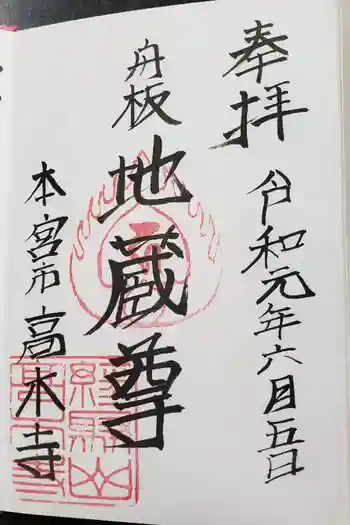 奉拝
令和元年六月五日
舟板
地蔵尊
本宮市高木寺